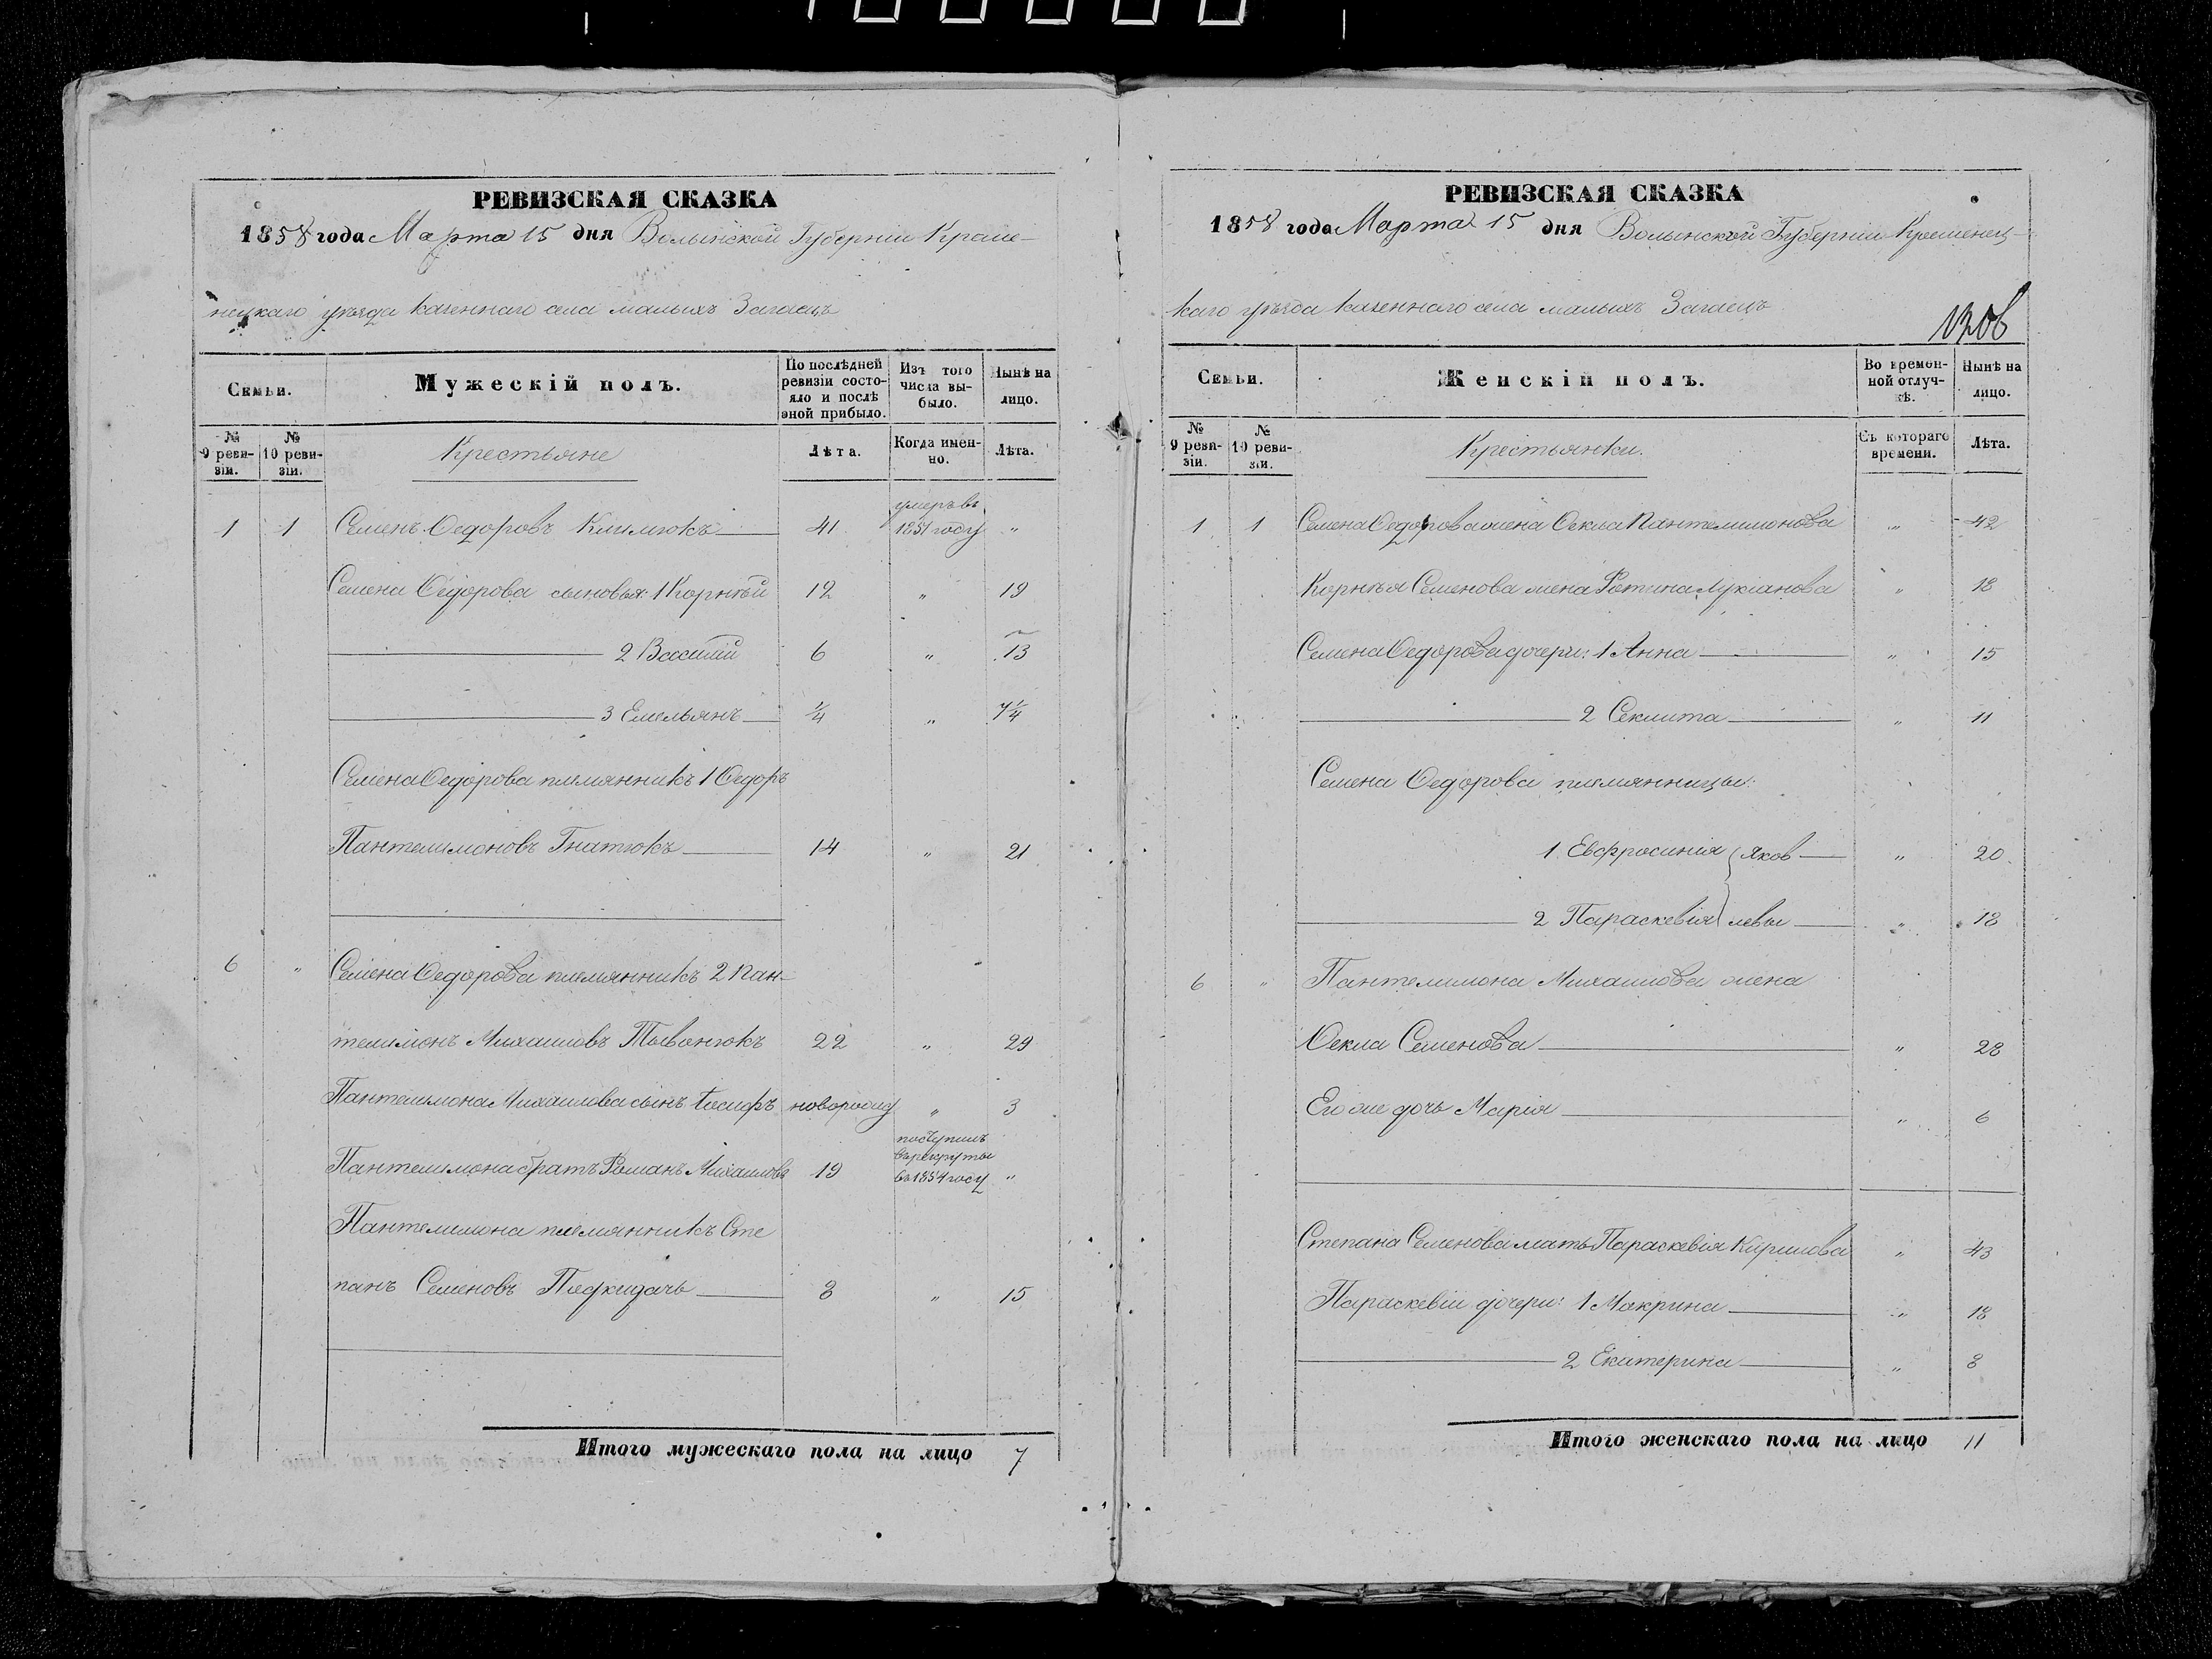 РЕВИЗСКАЯ СКАЗКА
1858 года Марта 15 дня Волынской Губерніи Креме-
нецкаго уѣзда казеннаго села малыхъ Загаецъ
Семьи.
Мужескій полъ.
По послѣдней ревизіи состояло и послѣ оной прибыло.
Изъ того числа выбыло.
Нынѣ на лицо.
№ 9 ревизіи.
№ 10 ревизіи.
Крестьяне
Лѣта.
Когда именно.
Лѣта.
1 1 Семенъ Ѳедоровъ Климюкъ 41 умеръ въ 1851 году "
Семена Ѳедорова сыновья: 1 Корнѣй 12 " 19
2 Василій 6 " 13
3 Емельянъ 1/4 " 7 1/4
Семена Ѳедорова племянникъ 1 Ѳедоръ
Пантелимоновъ Гнатюкъ 14 " 21
6 " Семена Ѳедорова племянникъ 2 Пан-
телимонъ Михаиловъ 22 " 29
Пантелимона Михаилова сынъ Іосифъ новорожд " 3
Пантелимона братъ Романъ Михаиловъ 19 поступилъ въ рекруты въ 1854 году "
Пантелимона племянникъ Сте
панъ Семеновъ 8 " 15
Итого мужескаго пола на лицо 7
РЕВИЗСКАЯ СКАЗКА
1858 года Марта 15 дня Волынской Губерніи Кременец-
каго уѣзда казеннаго села малыхъ Загаецъ
Семьи.
Женскій полъ.
Во временной отлучкѣ.
Нынѣ на лицо.
№ 9 ревизіи.
№ 10 ревизіи.
Крестьянки.
Съ котораго времени.
Лѣта.
1 1 Семена Ѳедорова жена Ѳекла Пантелимонова " 42
Корнѣя Семенова жена Фотина Лукіанова " 18
Семена Ѳедорова дочери: 1 Анна " 15
2 Секлита " 11
Семена Ѳедорова племянницы:
1. Евфросинія Яков " 20
2 Параскевія левы " 18
6 " Пантелимона Михаилова жена
Ѳекла Семенова " 28
Его же дочь Марія " 6
Степана Семенова мать Параскевія Кирилова " 43
Параскевіи дочери: 1 Макрина " 18
2 Екатерина " 8
Итого женскаго пола на лицо 11